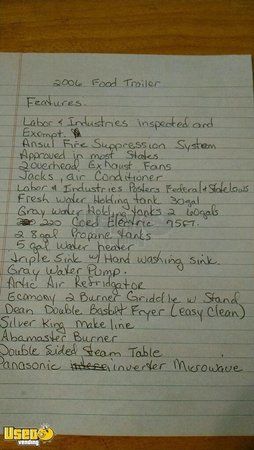 2006 Food Trailer
Features.
Labor & Industries inspected and
Exempt.
Ansul Fire Suppression System
Approved in most States
2 overhead Exhaust Fans
Jacks, air Conditioner
Labor & Industries Posters Federal & State laws
Fresh water Holding tank 30gal
Gray water Holding tanks 2 60gals
220 Cord Electric 75FT.
2 8gal Propane tanks
5 gal water heater
Triple Sink w/ Hand washing sink.
Gray Water Pump.
Artic Air Refridgator
Economy 2 Burner Griddle w Stand
Dean Double Basket Fryer (easy Clean)
Silver King Make line
Abamaster Burner
Double Sided Steam Table
Panasonic Inverter Microwave
Used
vending